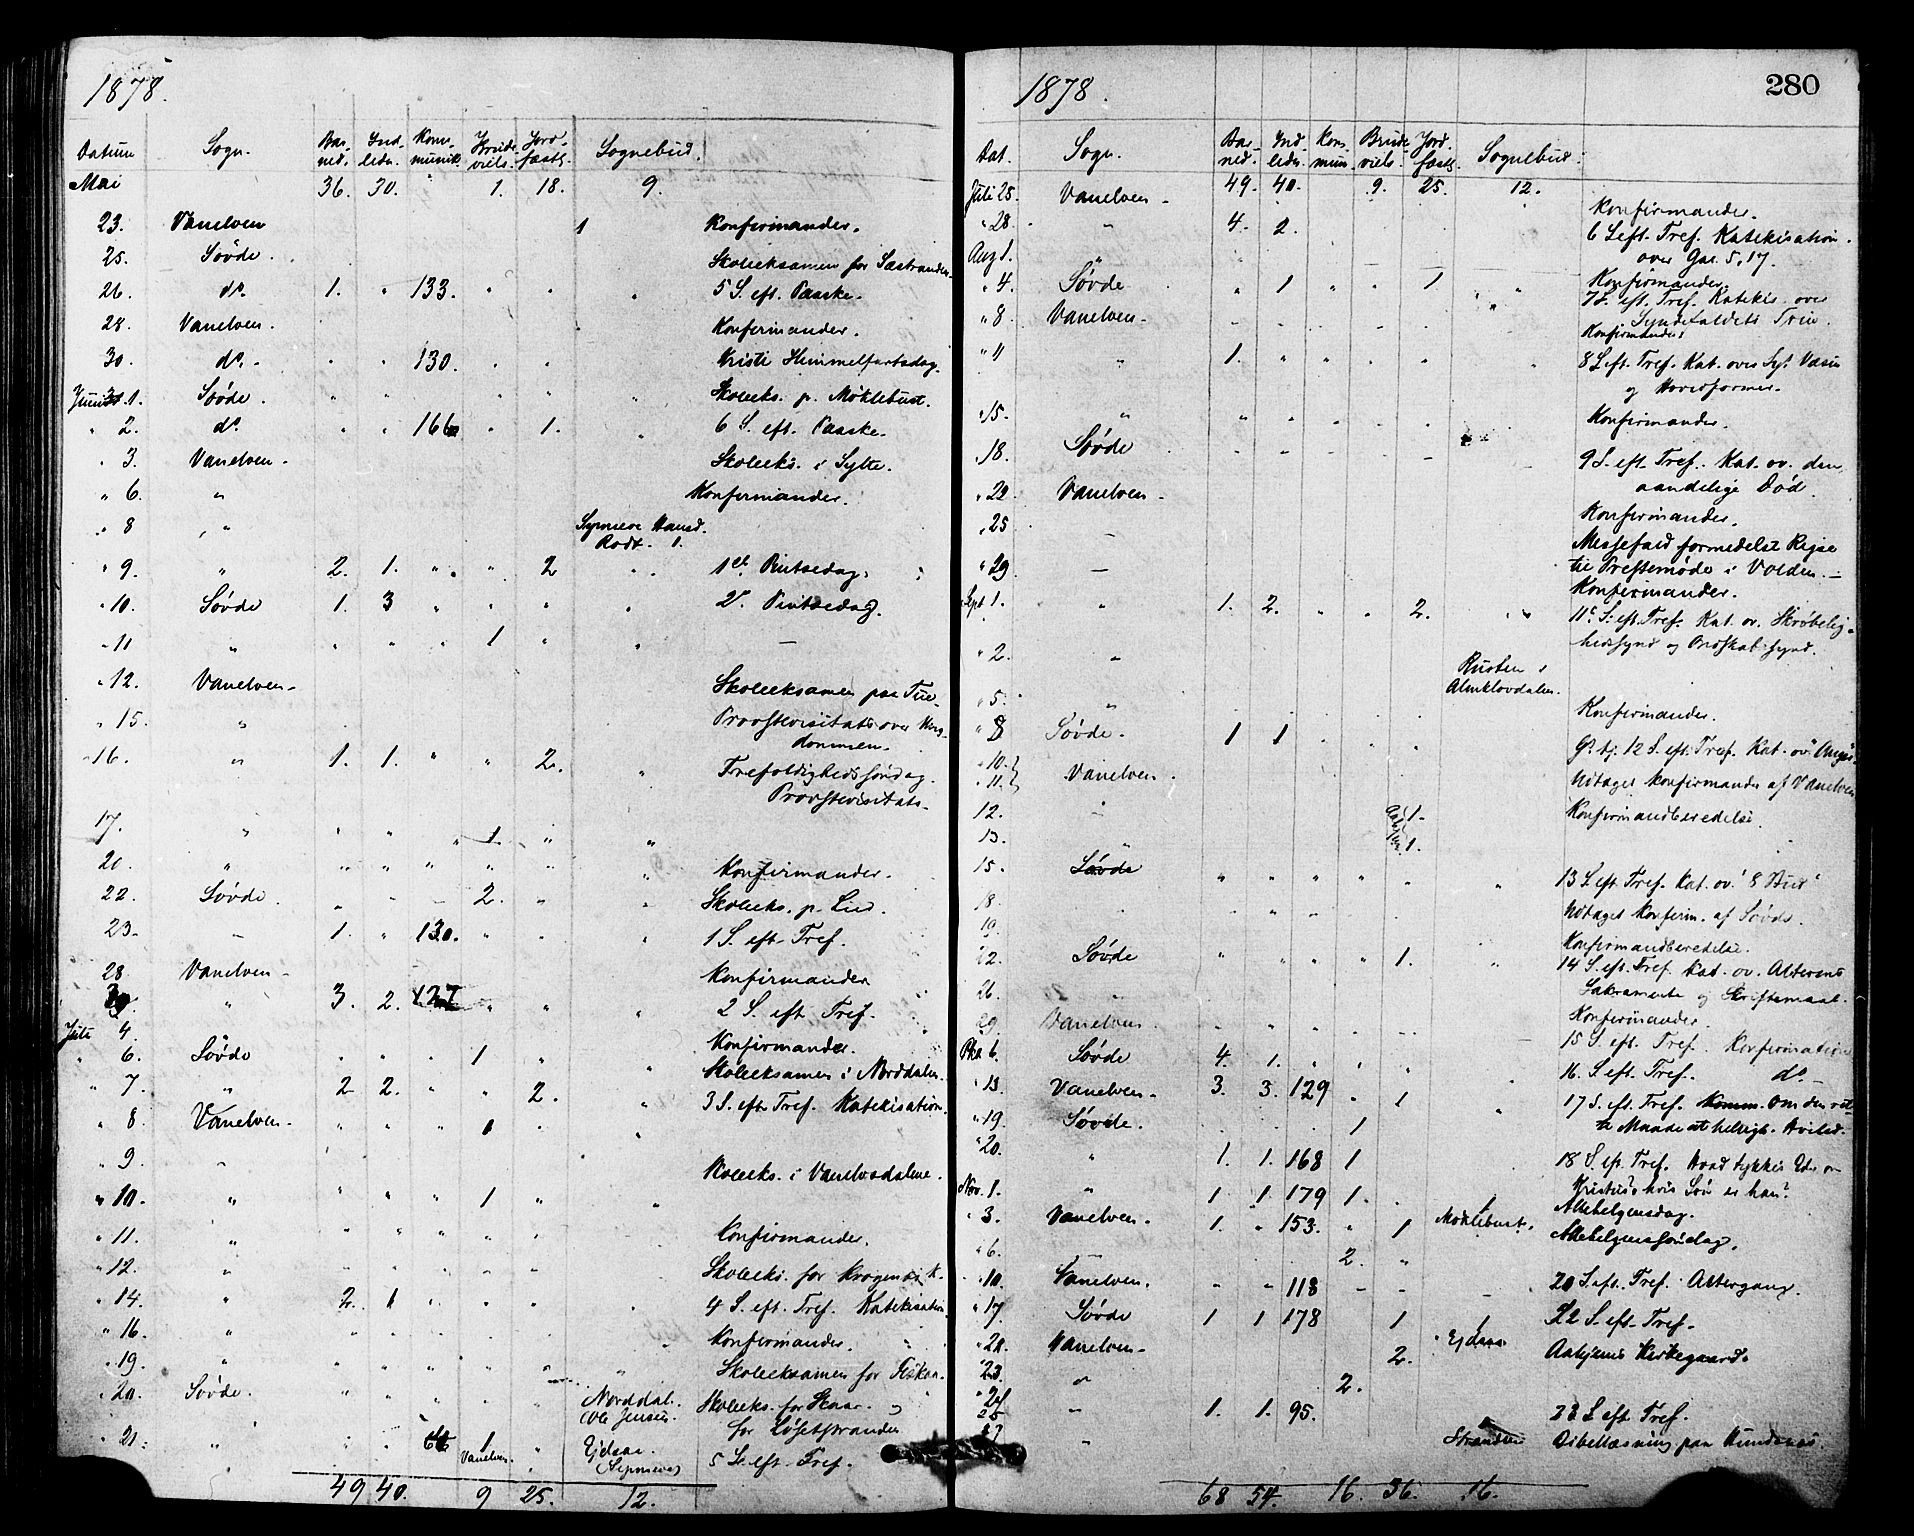 1878.
Datum Sogn. Bar- Ind- Kom- Brude Jord- Sognebud.
ned. ledn. munik. viels. fæstls.
Mai 36. 30. " 1. 18. 9.
23. Vanelven 1 Konfirmander.
25. Søvde. Skoleeksamen for Sæstranden.
26. do. 1. " 133. " " " 5 S. eft. Paaske.
28. Vanelven. Konfirmander.
30. do. " " 130. " " Kristi Himmelfartsdag.
Juni 1. Søvde. Skoleeks. p. Møklebust.
" 2. do. " " 166 " 1. " 6 S. eft. Paaske.
" 3. Vanelven. Skoleeks. i Sylte.
" 6. " Konfirmander.
" 8 " Synneve Hansd.
Rødt. 1.
" 9. " 2. 1. " " 2 " 1ste Pintsedag.
" 10. Søvde 1. 3 " " " " 2. Pintsedag.
" 11 " " " " 1 " " —
" 12. Vanelven Skoleeksamen paa Tue
" 15. " Provstevisitats over Ung-
dommen.
" 16. " 1. 1. " " 2. " Trefoldighedssøndag.
Provstevisitats.
17. " " " " 1. " "
20. " " " " " " " Konfirmander.
22. Søvde. 2. " " Skoleeks. p. Lid.
23. — 1. " 130. " " " 1 S. eft. Tref.
28 Vanelven Konfirmander
30. " 3. 2. 127 " " " 2 S. eft. Tref.
Juli 4. Konfirmander.
" 6. Søvde " " " 1 " " Skoleeksamen i Norddalen.
" 7. " 2 2. " " 2. " 3 S. eft. Tref. Katekisation.
" 8. Vanelven. " " " 1 " "
" 9. — Skoleeks. i Vanelvsdalene.
" 10. " " " " 1 " "
" 11. " Konfirmander.
" 12. " Skoleeks. for
" 14. " 2. 1 " " " " 4 S. eft. Tref. Katekisation
" 16. " Konfirmander.
" 19. " Skoleeksamen for Fiskaa.
" 20. Søvde. Norddal. Skoleeks. for Skaar. og
Ole Jensen. for
" 21. " 1 Ejdsaa.
Vanelven. (Synneve) 5 S. eft. Tref.
49 40. 9 25. 12.
1878. 280
Dat. Sogn. Bar- Ind- Kom- Brude Jord- Sognebud.
ned. ledn. mun. viels. fæstls.
Juli 25. Vanelven 49. 40. 9. 25. 12.
Konfirmander.
" 28. " 4. 2. 6 S. eft. Tref. Katekisation.
Aug 1. " over Gal. 5, 17.
" 4. Søvde " 1 " " 1 Konfirmander.
7 S. eft. Tref. Katekis. over
" 8 Vanelven. Syndefaldets Trin.
Konfirmander.
" 11 " 1. 8 S. eft. Tref. Kat. over Sy. Væsen
og Hovedformer.
" 15. " Konfirmander.
" 18. Søvde 9 S. eft. Tref. Kat. ov. den
aandelige Død.
" 22. Vanelven
" 25 Konfirmander.
Messefald formedelst Rejse
" 29. — til Præstemøde i Volden.
Konfirmander.
Sept 1. " 1. 2. " " 2. " 11te S. eft. Tref. Kat. ov. Skrøbelig-
hedssynd og Ondskabssynd.
" 2. " Rusten i
Almklovdalen.
" 5. " Konfirmander.
" 8 Søvde. 1 1 12 S. eft. Tref. Kat. ov.
" 10. Vanelven. Udtaget Konfirmander af Vanelven
" 11.
12. " 1. Konfirmandberedelse.
13. " 1.
15. Søvde " " " " " 13 S. eft. Tref. Kat. ov. 8 Bud
18. Udtaget Konfirm. af Søvde.
19.
Konfirmandberedelse.
22. Søvde " " " " 1. " 14 S. eft. Tref. Kat. ov. Alterens
26. " Sakramente og Skriftemaal.
Konfirmander.
29. Vanelven. 15 S. eft. Tref. Konfirmation
Okt 6. Søvde 4. 1. 16. S. eft. Tref. do.
" 13 Vanelven. 3. 3. 129 " 1 " 17 S. eft. Tref. Komm. Om den ret-
" 19. Søvde. 1 te Maade at hellige Hviled.
" 20. " 1. 1. 168 1 18 S. eft. Tref. Hvad tykkes Eder om
Nov. 1. " 1 1 179 1. Kristus, hvis Søn er han?
1 Allehelgensdag.
" 3. Vanelven. 1. " 153. " 1 Møklebust. Allehelgenssøndag.
" 6. — 2. "
" 10. Vanelven. " " 118 20 S. eft. Tref. Altergang.
" 17. Søvde 1 1 178 1 1 22 S. eft. Tref.
Vanelven. 2. Ejdsaa Kirkegaard.
" 23. " 2.
" 24 " 1. 1. 95. 23 S. eft. Tref.
25
27 " Stranden Bibellæsning paa
68 54. 16. 36. 16.